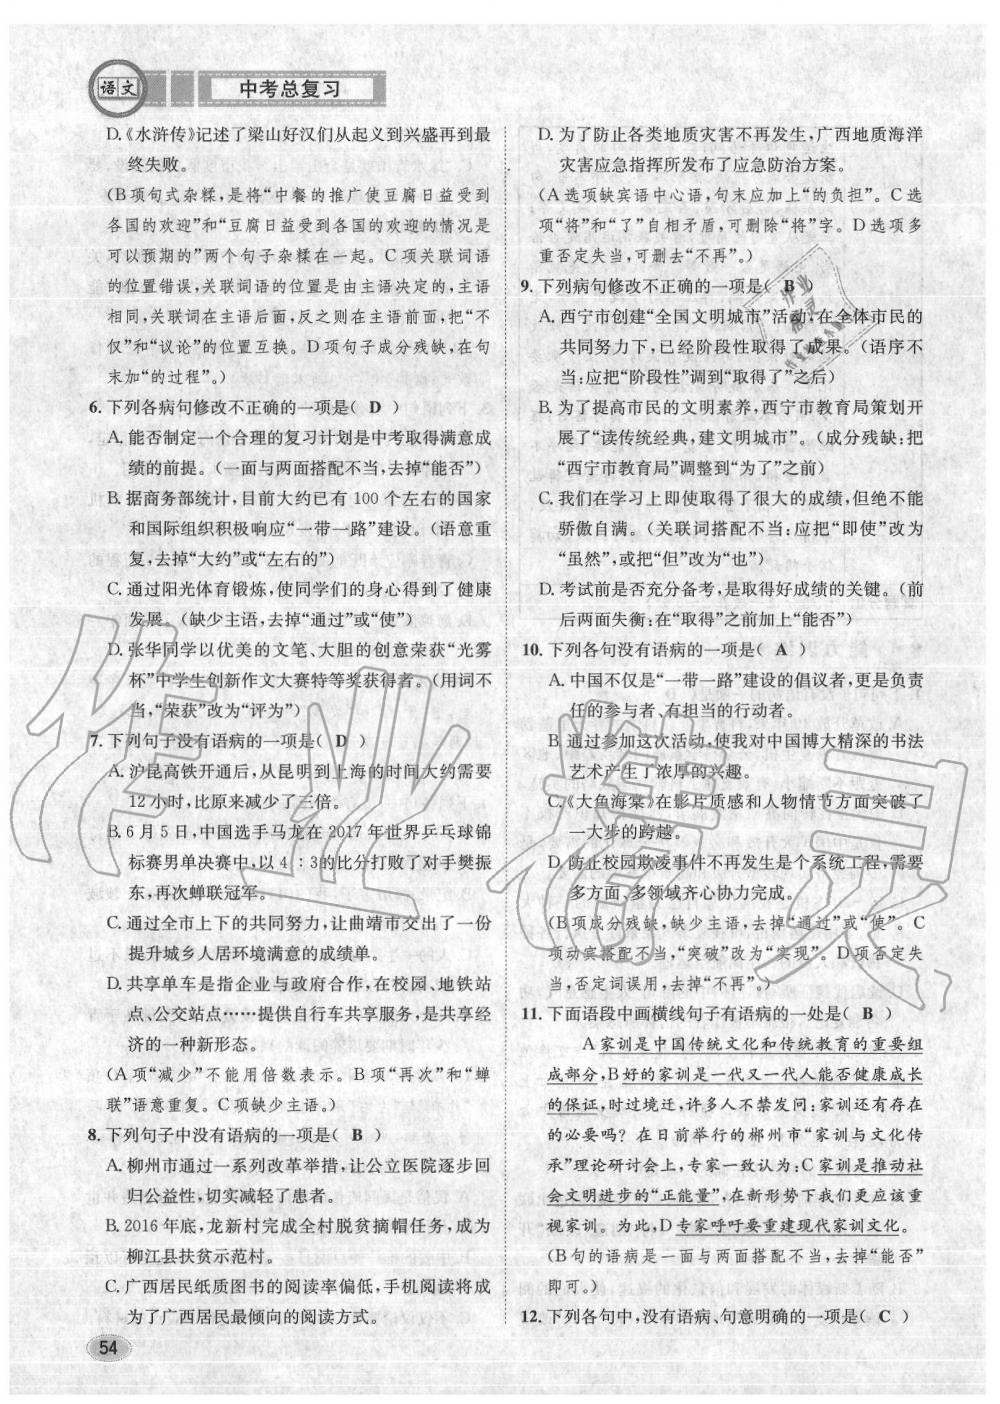 语文 中考总复习
D.《水浒传》记述了梁山好汉们从起义到兴盛再到最
终失败。
(B项句式杂糅,是将“中餐的推广使豆腐日益受到
各国的欢迎”和“豆腐日益受到各国的欢迎的情况是
可以预期的”两个句子杂糅在一起。C项关联词语
的位置错误,关联词语的位置是由主语决定的,主语
相同,关联词在主语后面,反之则在主语前面,把“不
仅”和“议论”的位置互换。D项句子成分残缺,在句
末加“的过程”。)
6. 下列各病句修改不正确的一项是( D )
A. 能否制定一个合理的复习计划是中考取得满意成
绩的前提。(一面与两面搭配不当,去掉“能否”)
B. 据商务部统计,目前大约已有 100 个左右的国家
和国际组织积极响应“一带一路”建设。(语意重
复,去掉“大约”或“左右的”)
C. 通过阳光体育锻炼,使同学们的身心得到了健康
发展。(缺少主语,去掉“通过”或“使”)
D. 张华同学以优美的文笔、大胆的创意荣获“光雾
杯”中学生创新作文大赛特等奖获得者。(用词不
当,“荣获”改为“评为”)
7. 下列句子没有语病的一项是( D )
A. 沪昆高铁开通后,从昆明到上海的时间大约需要
12小时,比原来减少了三倍。
B. 6 月 5 日,中国选手马龙在 2017 年世界乒乓球锦
标赛男单决赛中,以 4∶3的比分打败了对手樊振
东,再次蝉联冠军。
C. 通过全市上下的共同努力,让曲靖市交出了一份
提升城乡人居环境满意的成绩单。
D. 共享单车是指企业与政府合作,在校园、地铁站
点、公交站点……提供自行车共享服务,是共享经
济的一种新形态。
(A项“减少”不能用倍数表示。B项“再次”和“蝉
联”语意重复。C项缺少主语。)
8. 下列句子中没有语病的一项是( B )
A. 柳州市通过一系列改革举措,让公立医院逐步回
归公益性,切实减轻了患者。
B. 2016 年底,龙新村完成全村脱贫摘帽任务,成为
柳江县扶贫示范村。
C. 广西居民纸质图书的阅读率偏低,手机阅读将成
为了广西居民最倾向的阅读方式。
54
D. 为了防止各类地质灾害不再发生,广西地质海洋
灾害应急指挥所发布了应急防治方案。
(A选项缺宾语中心语,句末应加上“的负担”。C选
项“将”和“了”自相矛盾,可删除“将”字。D选项多
重否定失当,可删去“不再”。)
9. 下列病句修改不正确的一项是( B )
A. 西宁市创建“全国文明城市”活动,在全体市民的
共同努力下,已经阶段性取得了成果。(语序不
当:应把“阶段性”调到“取得了”之后)
B. 为了提高市民的文明素养,西宁市教育局策划开
展了“读传统经典,建文明城市”。(成分残缺:把
“西宁市教育局”调整到“为了”之前)
C. 我们在学习上即使取得了很大的成绩,但绝不能
骄傲自满。(关联词搭配不当:应把“即使”改为
“虽然”,或把“但”改为“也”)
D. 考试前是否充分备考,是取得好成绩的关键。(前
后两面失衡:在“取得”之前加上“能否”)
10. 下列各句没有语病的一项是( A )
A. 中国不仅是“一带一路”建设的倡议者,更是负责
任的参与者、有担当的行动者。
B. 通过参加这次活动,使我对中国博大精深的书法
艺术产生了浓厚的兴趣。
C.《大鱼海棠》在影片质感和人物情节方面突破了
一大步的跨越。
D. 防止校园欺凌事件不再发生是个系统工程,需要
多方面、多领域齐心协力完成。
(B项成分残缺,缺少主语,去掉“通过”或“使”。C
项动宾搭配不当,“突破”改为“实现”。D项否定失
当,否定词误用,去掉“不再”。)
11. 下面语段中画横线句子有语病的一处是( B )
A 家训是中国传统文化和传统教育的重要组
成部分,B好的家训是一代又一代人能否健康成长
的保证,时过境迁,许多人不禁发问:家训还有存在
的必要吗?在日前举行的郴州市“家训与文化传
承”理论研讨会上,专家一致认为:C家训是推动社
会文明进步的“正能量”,在新形势下我们更应该重
视家训。为此,D专家呼吁要重建现代家训文化。
(B句的语病是一面与两面搭配不当,去掉“能否”
即可。)
12. 下列各句中,没有语病、句意明确的一项是( C )
作业精灵